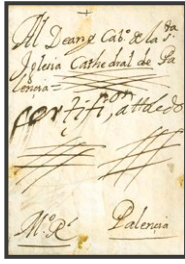 Al Dean y Cab.º de la S.ta
Iglesia Cathedral de Pa
lencia =
Certifi.on
M.º R.l Palencia